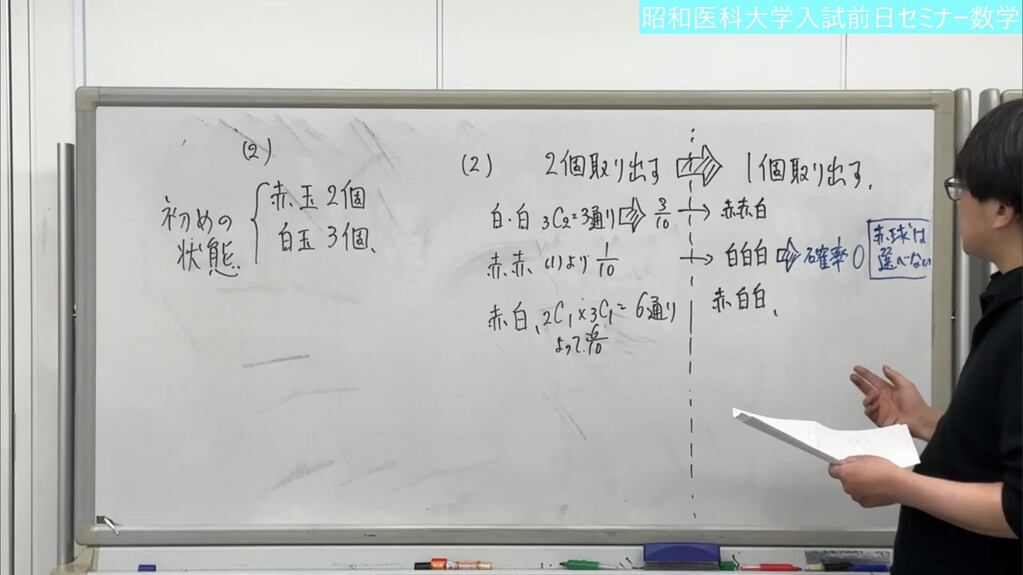 昭和医科大学入試前日セミナー数学
(2)
初めの状態
赤玉2個
白玉3個、
(2) 2個取り出す ⇨ 1個取り出す.
白・白 ₃C₂=3通り ⇨ 3/10 → 赤赤白
赤、赤、(1)より 1/10 → 白白白 ⇨ 確率0 赤球は選べない
赤、白、₂C₁×₃C₁=6通り 赤、白白、
よって、6/10